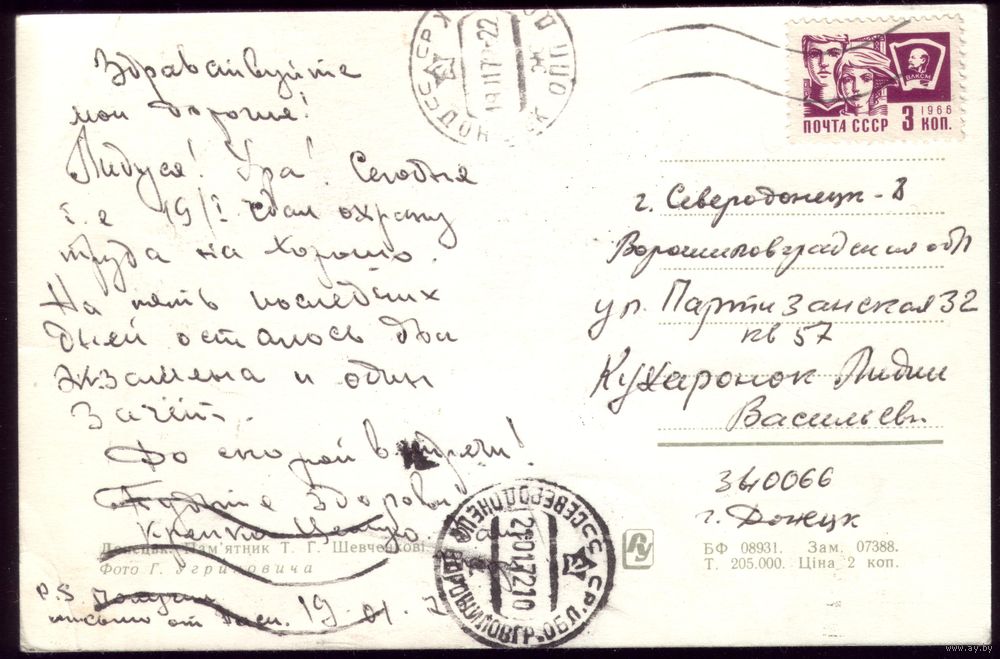 Здравствуйте
мои дорогие!
Лидуся! Ура! Сегодня
т.е 19/I сдал охрану
труда на хорошо.
На пять последних
дней осталось два
экзамена и один
зачёт.
До скорой встречи!
Будьте здоровы
Крепко целую.
Донецьк. Пам'ятник Т. Г. Шевченкові.
Фото Г. Угриновича
P.S Получил
письмо от Васи. 19.01.
ПОЧТА СССР 3 КОП.
1966
ВЛКСМ
г. Северодонецк-8
Ворошиловградская обл
ул. Партизанская 32
кв 57
Кухаронок Лидии
Васильевн.
340066
г. Донецк
БФ 08931. Зам. 07388.
Т. 205.000. Ціна 2 коп.
СССР
СЕВЕРОДОНЕЦК ВОРОШИЛОВГР. ОБЛ.
СССР
www.ay.by